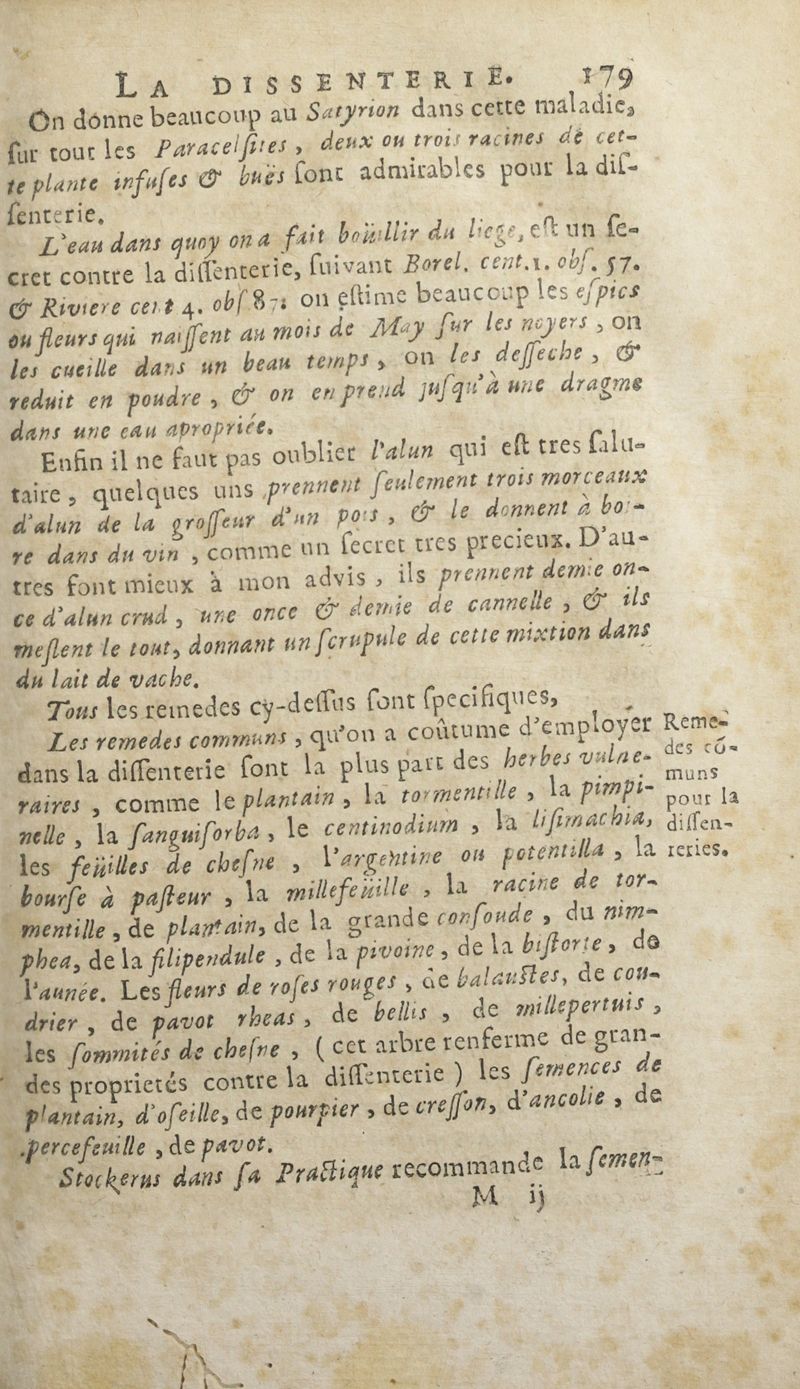 LA DISSENTERIE. 179
On donne beaucoup au Satyrion dans cette maladie,
ſur tout les Paracelſites, deux ou trois racines de cet-
te plante infuſes & buës ſont admirables pour la diſ-
ſenterie.
L'eau dans quoy on a fait boüillir du liege, eſt un ſe-
cret contre la diſſenterie, ſuivant Borel. cent.1. obſ. 57.
& Riviere cent 4. obſ 87: on eſtime beaucoup les eſpics
ou fleurs qui naiſſent au mois de May ſur les noyers, on
les cueille dans un beau temps, on les deſſeche, &
reduit en poudre, & on en prend juſqu'à une dragme
dans une eau apropriée.
Enfin il ne faut pas oublier l'alun qui eſt tres ſalu-
taire, quelques uns prennent ſeulement trois morceaux
d'alun de la groſſeur d'un pois, & le donnent à boi-
re dans du vin, comme un ſecret tres precieux. D'au-
tres font mieux à mon advis, ils prennent demie on-
ce d'alun crud, une once & demie de cannelle, & ils
meſlent le tout, donnant un ſcrupule de cette mixtion dans
du lait de vache.
Tous les remedes cy-deſſus ſont ſpecifiques,
Les remedes communs, qu'on a coûtume d'employer
dans la diſſenterie ſont la plus part des herbes vulne-
raires, comme le plantain, la tormentille, la pimpi-
nelle, la ſanguiſorba, le centinodium, la liſimachia,
les feüilles de cheſne, l'argentine ou potentilla, la
bourſe à paſteur, la millefeüille, la racine de tor-
mentille, de plantain, de la grande conſoude, du nim-
phea, de la filipendule, de la pivoine, de la biſtorte, de
l'aunée. Les fleurs de roſes rouges, de balauſtes, de cou-
drier, de pavot rheas, de bellis, de millepertuis,
les ſommités de cheſne, (cet arbre renferme de gran-
des proprietés contre la diſſenterie) les ſemences de
plantain, d'oſeille, de pourpier, de creſſon, d'ancolie, de
percefeuille, de pavot.
Stockerus dans ſa Practique recommande la ſemen-
M ij
Reme-
des cō-
muns
pour la
diſſen-
teries.